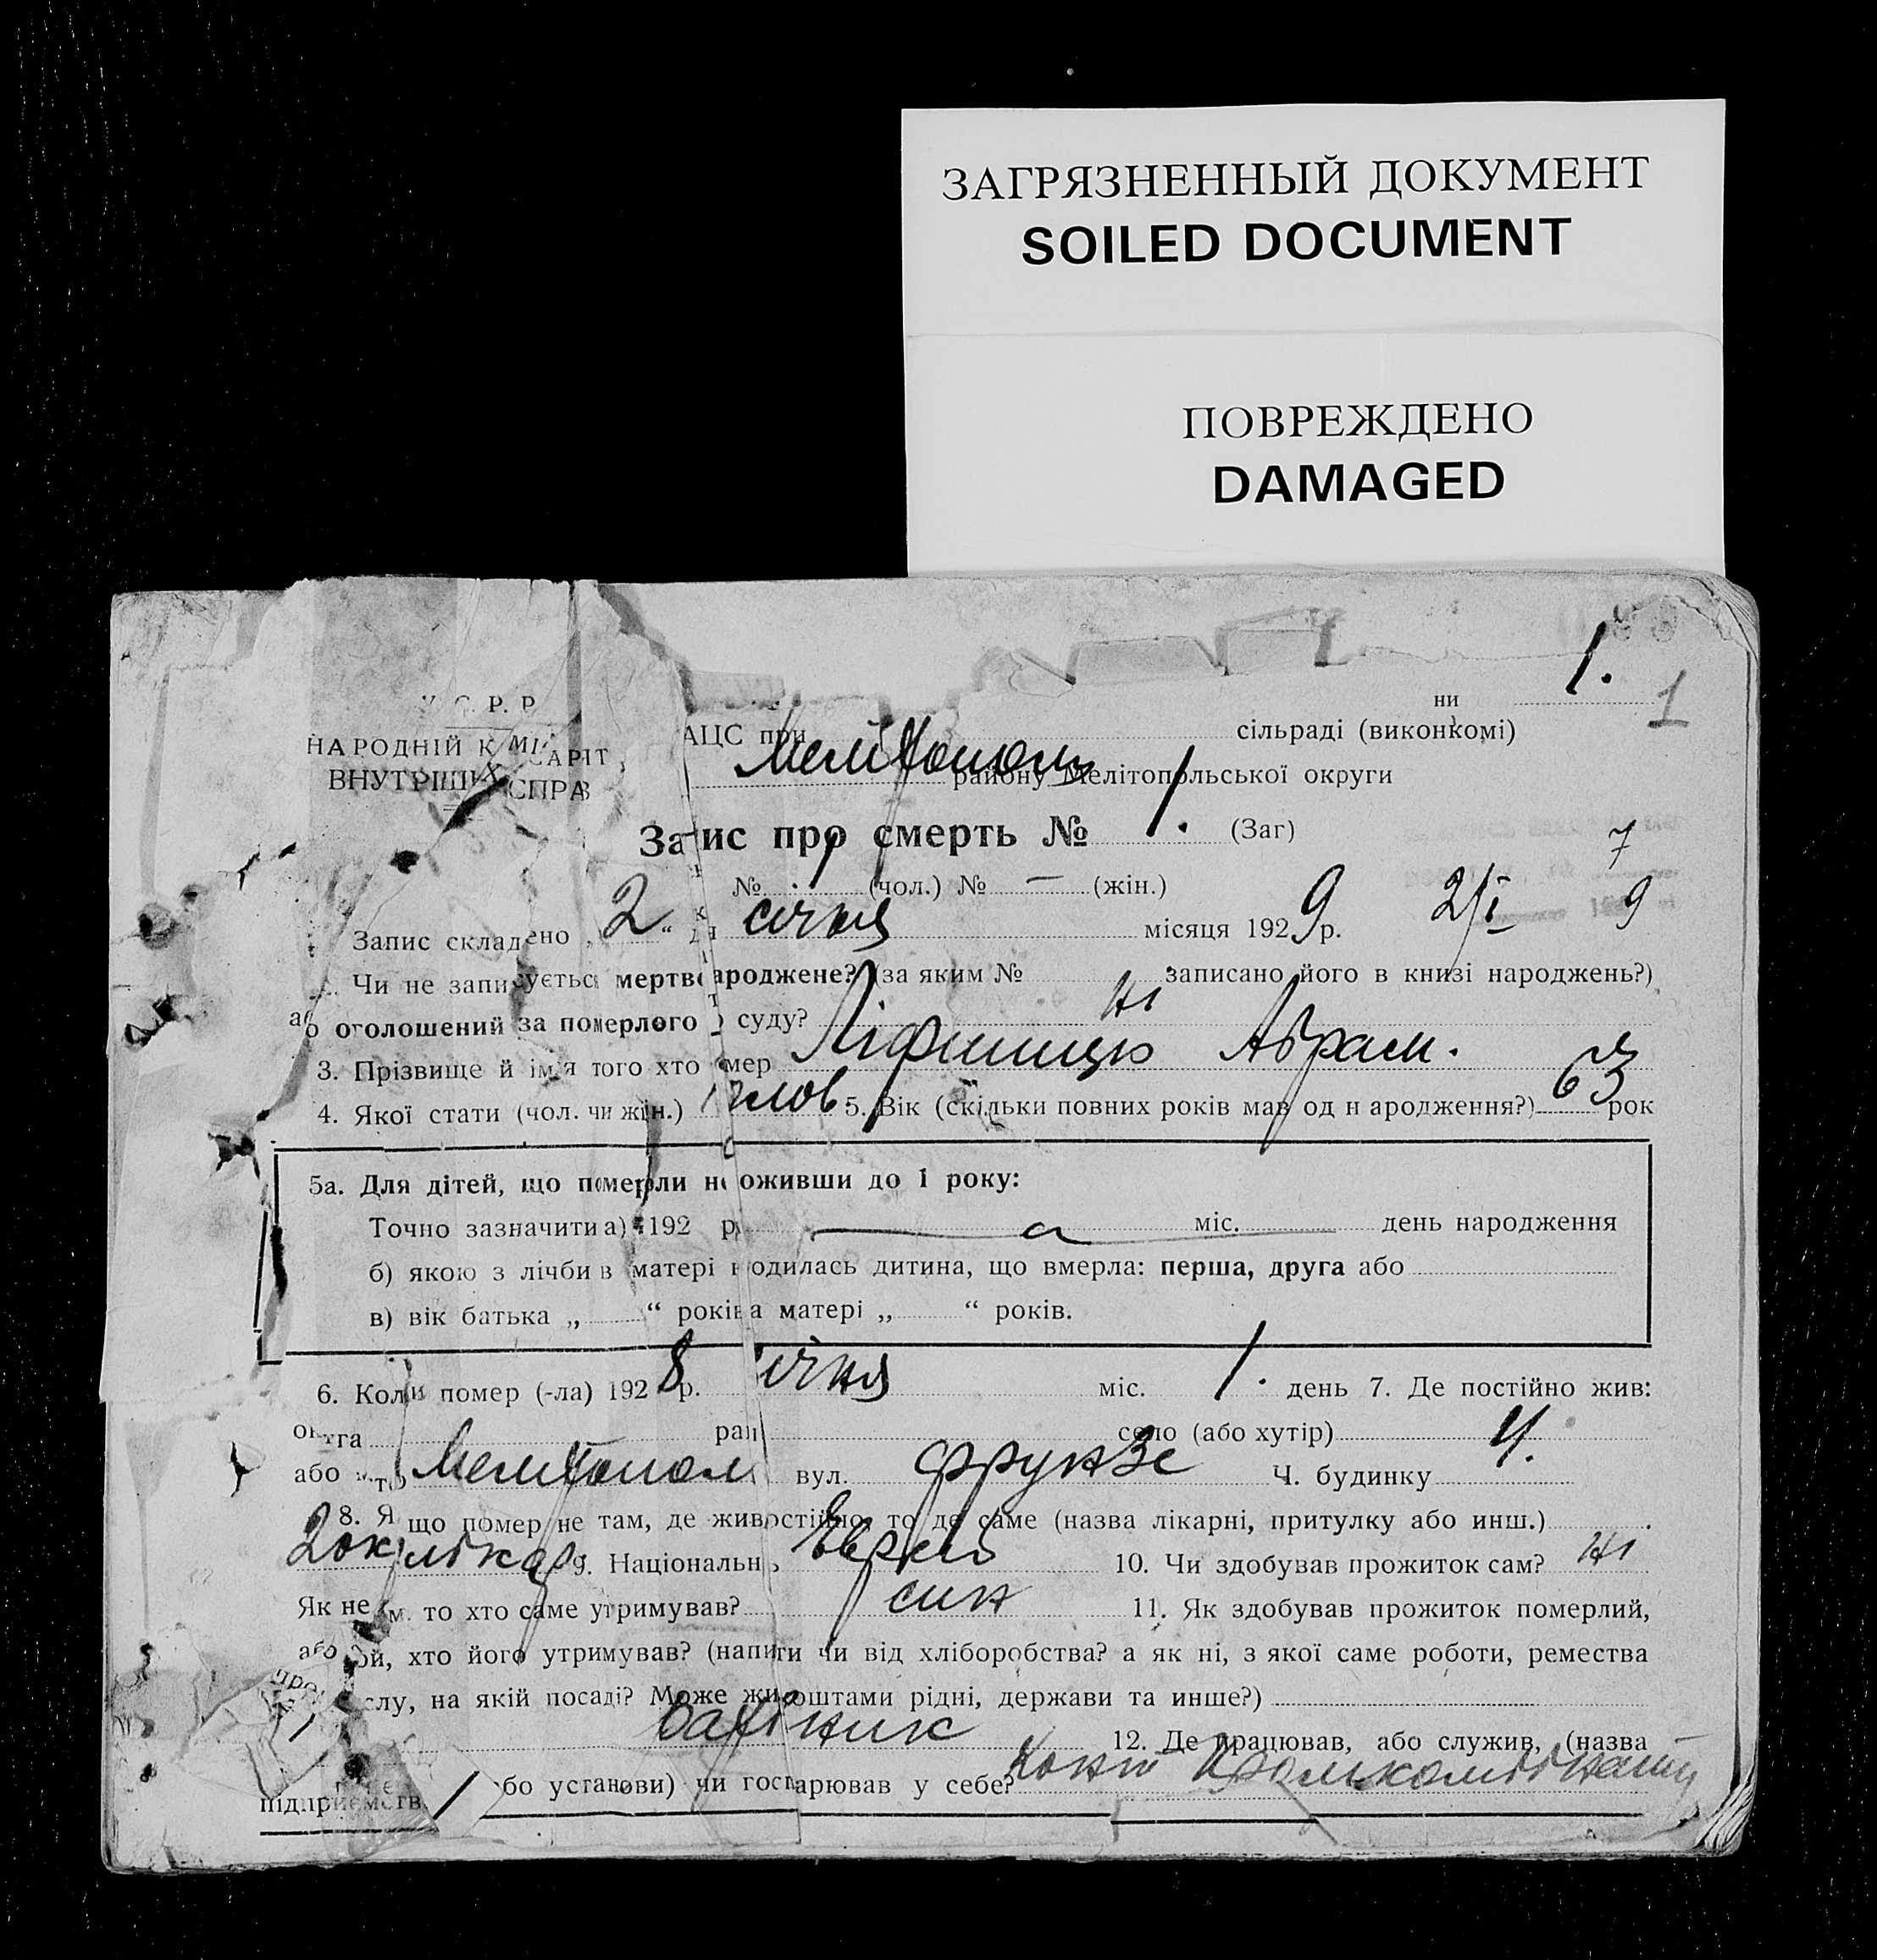 ЗАГРЯЗНЕННЫЙ ДОКУМЕНТ
SOILED DOCUMENT
ПОВРЕЖДЕНО
DAMAGED
1.
ни
1
С. Р. Р
НАРОДНІЙ К МІ САРІТ
ВНУТРІШ СПРАВ
АЦС при сільраді (виконкомі)
Мелітополь району Мелітопольської округи
Запис про смерть № 1. (Заг)
7
№ 1 (чол.) № — (жін.)
Запис складено „ 2 “ дя січня місяця 1929 р. 2/I 9
Чи не записується мертвароджене? (за яким № записано його в книзі народжень?)
або оголошений за померлого суду? Ні
3. Прізвище й ім'я того хто мер Ліфшицъ Абрам.
4. Якої стати (чол. чи жін.) члов 5. Вік (скільки повних років мав од н ародження?) 63 рок
5а. Для дітей, що померли н оживши до 1 року:
Точно зазначити а) 192 р. міс. день народження
б) якою з лічби в матері одилась дитина, що вмерла: перша, друга або
в) вік батька „ “ років а матері „ “ років.
6. Коли помер (-ла) 1928 р. ічня міс. 1. день 7. Де постійно жив:
округа рай село (або хутір)
або то Мелітопол вул. Фрунзе Ч. будинку 4.
8. Я що помер не там, де жив остійно, то де саме (назва лікарні, притулку або инш.)
2 окр лікар 9. Національн Еврей 10. Чи здобував прожиток сам? Ні
Як не м. то хто саме утримував? син 11. Як здобував прожиток померлий,
або ой, хто його утримував? (напиги чи від хліборобства? а як ні, з якої саме роботи, ремества
слу, на якій посаді? Може жи оштами рідні, держави та инше?)
12. Де працював, або служив, (назва
підприємств бо установи) чи госпарював у себе?